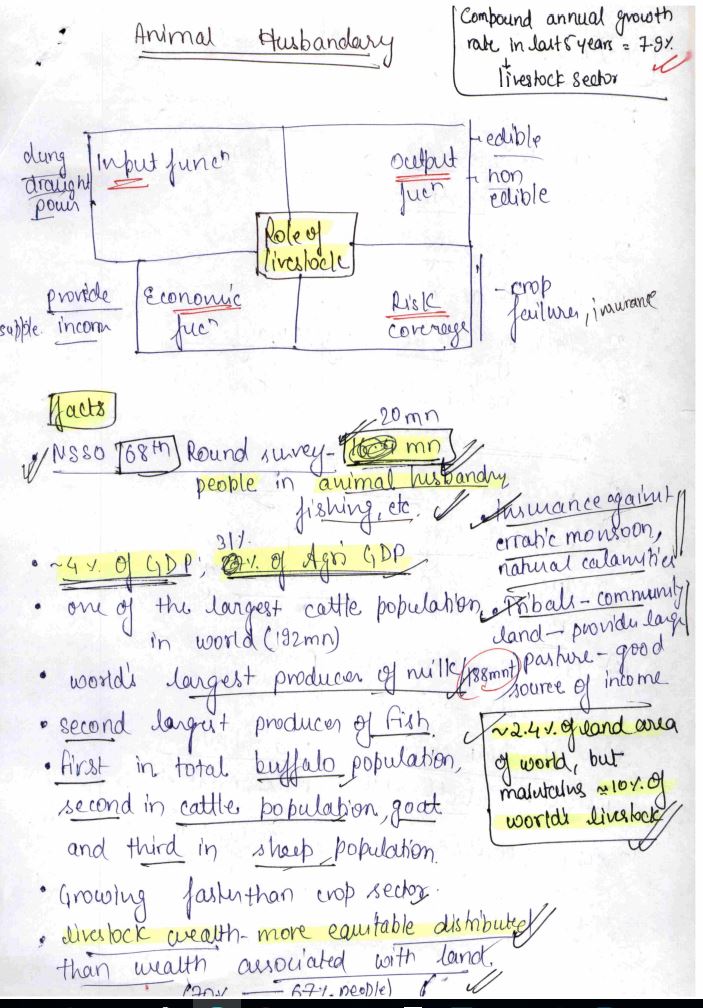 Animal Husbandary
Compound annual growth
rate in last 5 years = 7.9%
↓
livestock sector
dung
draught
power
Input funcn
output
fucn
- edible
- non
edible
Role of
livestock
provide
supple. incom
Economic
fucn
Risk
coverage
- crop
failures, insurance
facts
20 mn
NSSO 68th Round survey- mn
people in animal husbandry
fishing, etc.
Insurance against
erratic monsoon,
natural calamities
31%
• ~4% of GDP; % of Agri GDP
• one of the largest cattle population
in world (192mn)
Tribals - community
land - provides large
pasture - good
source of income
• world's largest producer of milk 188mnt
• second largest producer of fish.
• first in total buffalo population,
second in cattle population, goat
and third in sheep population.
~2.4% of land area
of world, but
maintains ≈10% of
world's livestock
• Growing faster than crop sector.
• livestock wealth- more equitable distributed
than wealth associated with land.
67% people)